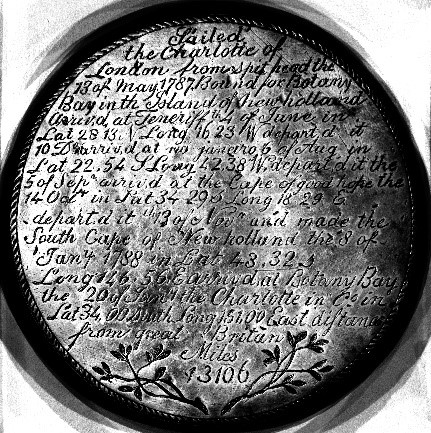 Sailed
the Charlotte of
London from spit head the
13 of May 1787. Bound for Botany
Bay in the Island of new holland
arriv.d at Teneriff th 4 of June in
Lat 28.13. N Long 16.23 W depart.d it
10 D arriv.d at rio janairo 6 of Aug in
Lat 22.54 S Long 42.38 W depart.d it the
5 of Sep.r arriv.d at the Cape of good hope the
14 Oct.r in Lat 34.29 S Long 18.29 E
depart.d it 13 of Nov.r and made the
South Cape of New holland the 8 of
Jan.y 1788 in Lat 43.32 S
Long 146.56 E arriv.d at Botany Bay
the 20 of Jan.y the Charlotte in Co in
Lat 34.00 South Long 151.00 East distance
from great Britan
Miles
13106